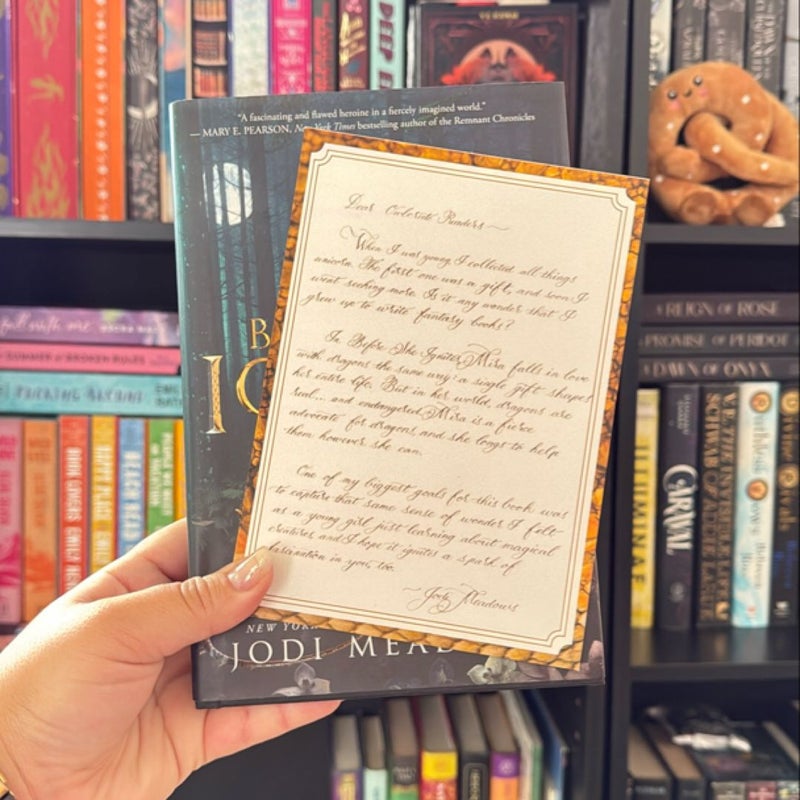 "A fascinating and flawed heroine in a fiercely imagined world."
— MARY E. PEARSON, New York Times bestselling author of the Remnant Chronicles
Dear Owlcrate Readers—
When I was young, I collected all things
unicorn. The first one was a gift, and soon I
went seeking more. Is it any wonder that I
grew up to write fantasy books?
In Before She Ignites, Mira falls in love
with dragons the same way: a single gift shapes
her entire life. But in her world, dragons are
real... and endangered. Mira is a fierce
advocate for dragons, and she longs to help
them however she can.
One of my biggest goals for this book was
to capture that same sense of wonder I felt
as a young girl just learning about magical
creatures, and I hope it ignites a spark of
fascination in you, too.
—Jodi Meadows
B
IG
NEW YORK
JODI MEAD
DEEP
A REIGN OF ROSE
PROMISE OF PERIDOT
A DAWN OF ONYX
SUMMER OF BROKEN RULES
BOOK LOVERS
EMILY
HAPPY PLACE
BEACH READ
ILLUMINAE
CARAVAL
SCHWAB
V.E.
THE INVISIBLE LIFE
OF ADDIE LARUE